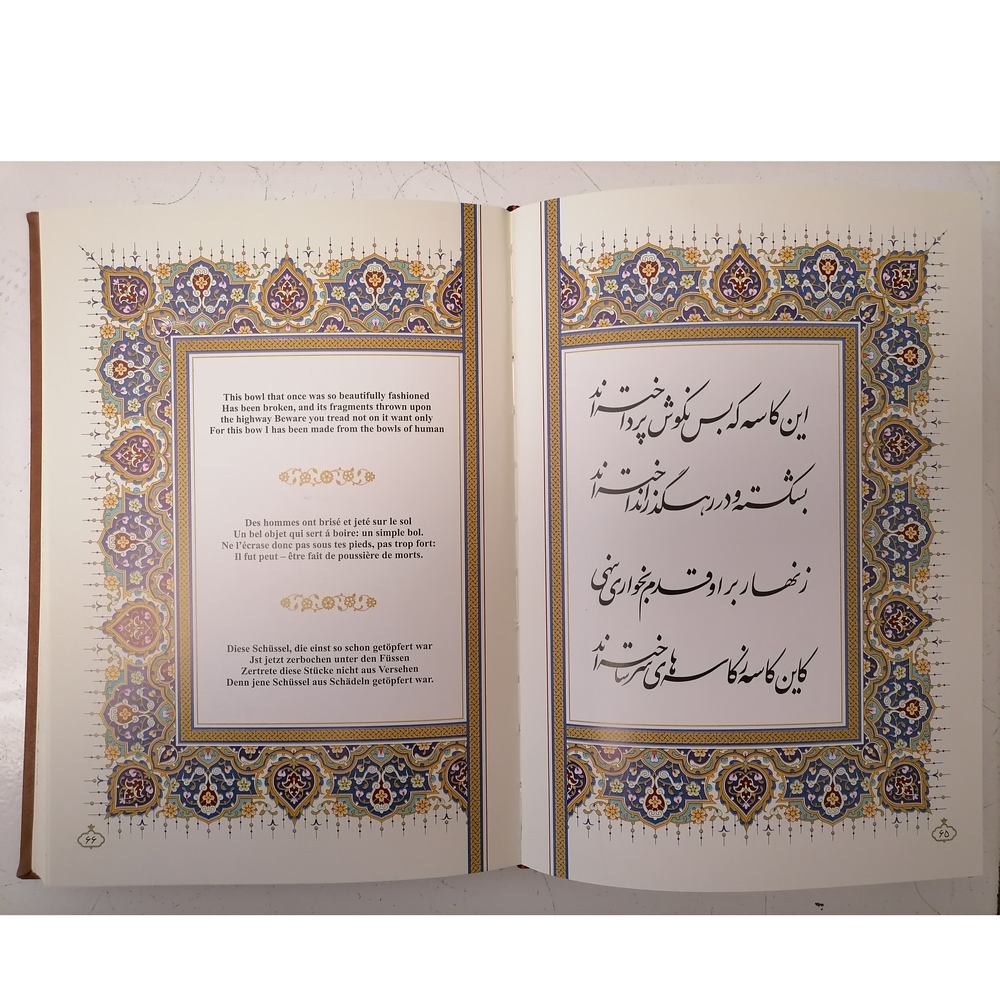 This bowl that once was so beautifully fashioned
Has been broken, and its fragments thrown upon
the highway Beware you tread not on it want only
For this bow I has been made from the bowls of human
Des hommes ont brisé et jeté sur le sol
Un bel objet qui sert á boire: un simple bol.
Ne l’écrase donc pas sous tes pieds, pas trop fort:
Il fut peut – être fait de poussière de morts.
Diese Schüssel, die einst so schon getöpfert war
Jst jetzt zerbochen unter den Füssen
Zertrete diese Stücke nicht aus Versehen
Denn jene Schüssel aus Schädeln getöpfert war.
۶۶
این کاسه که بس نکوش پرداخته‌اند
بشکسته و در رهگذر انداخته‌اند
زنهار بر او قدم بخواری ننهی
کاین کاسه ز کاسه‌های سر ساخته‌اند
۶۵